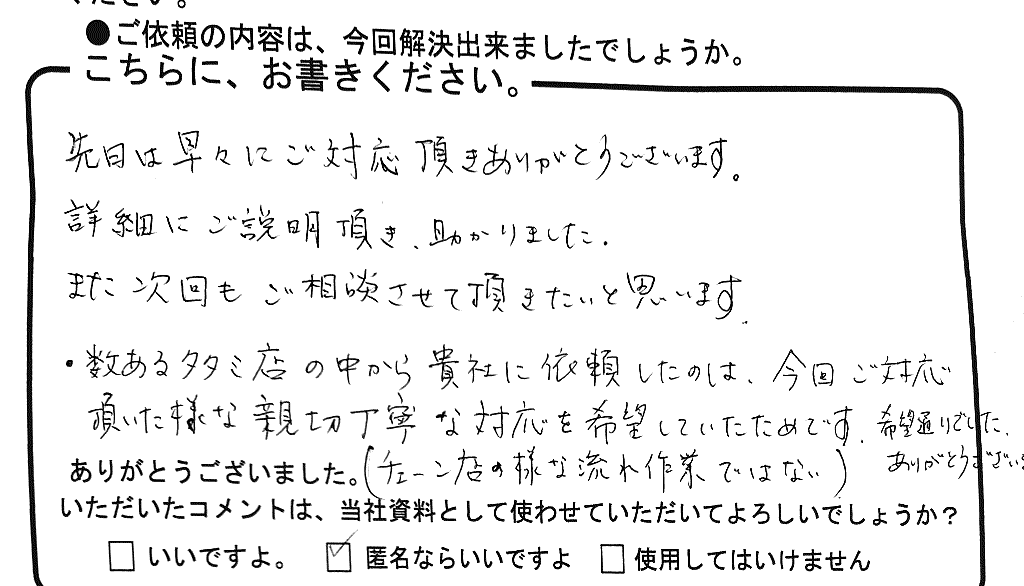 ください。
●ご依頼の内容は、今回解決出来ましたでしょうか。
こちらに、お書きください。
先日は早々にご対応頂きありがとうございます。
詳細にご説明頂き、助かりました.
また次回もご相談させて頂きたいと思います.
・数あるタタミ店の中から貴社に依頼したのは、今回ご対応
頂いた様な親切丁寧な対応を希望していたためです. 希望通りでした.
ありがとうございました。(チェーン店の様な流れ作業ではない) ありがとうござい
いただいたコメントは、当社資料として使わせていただいてよろしいでしょうか?
□ いいですよ。 ☑ 匿名ならいいですよ □ 使用してはいけません